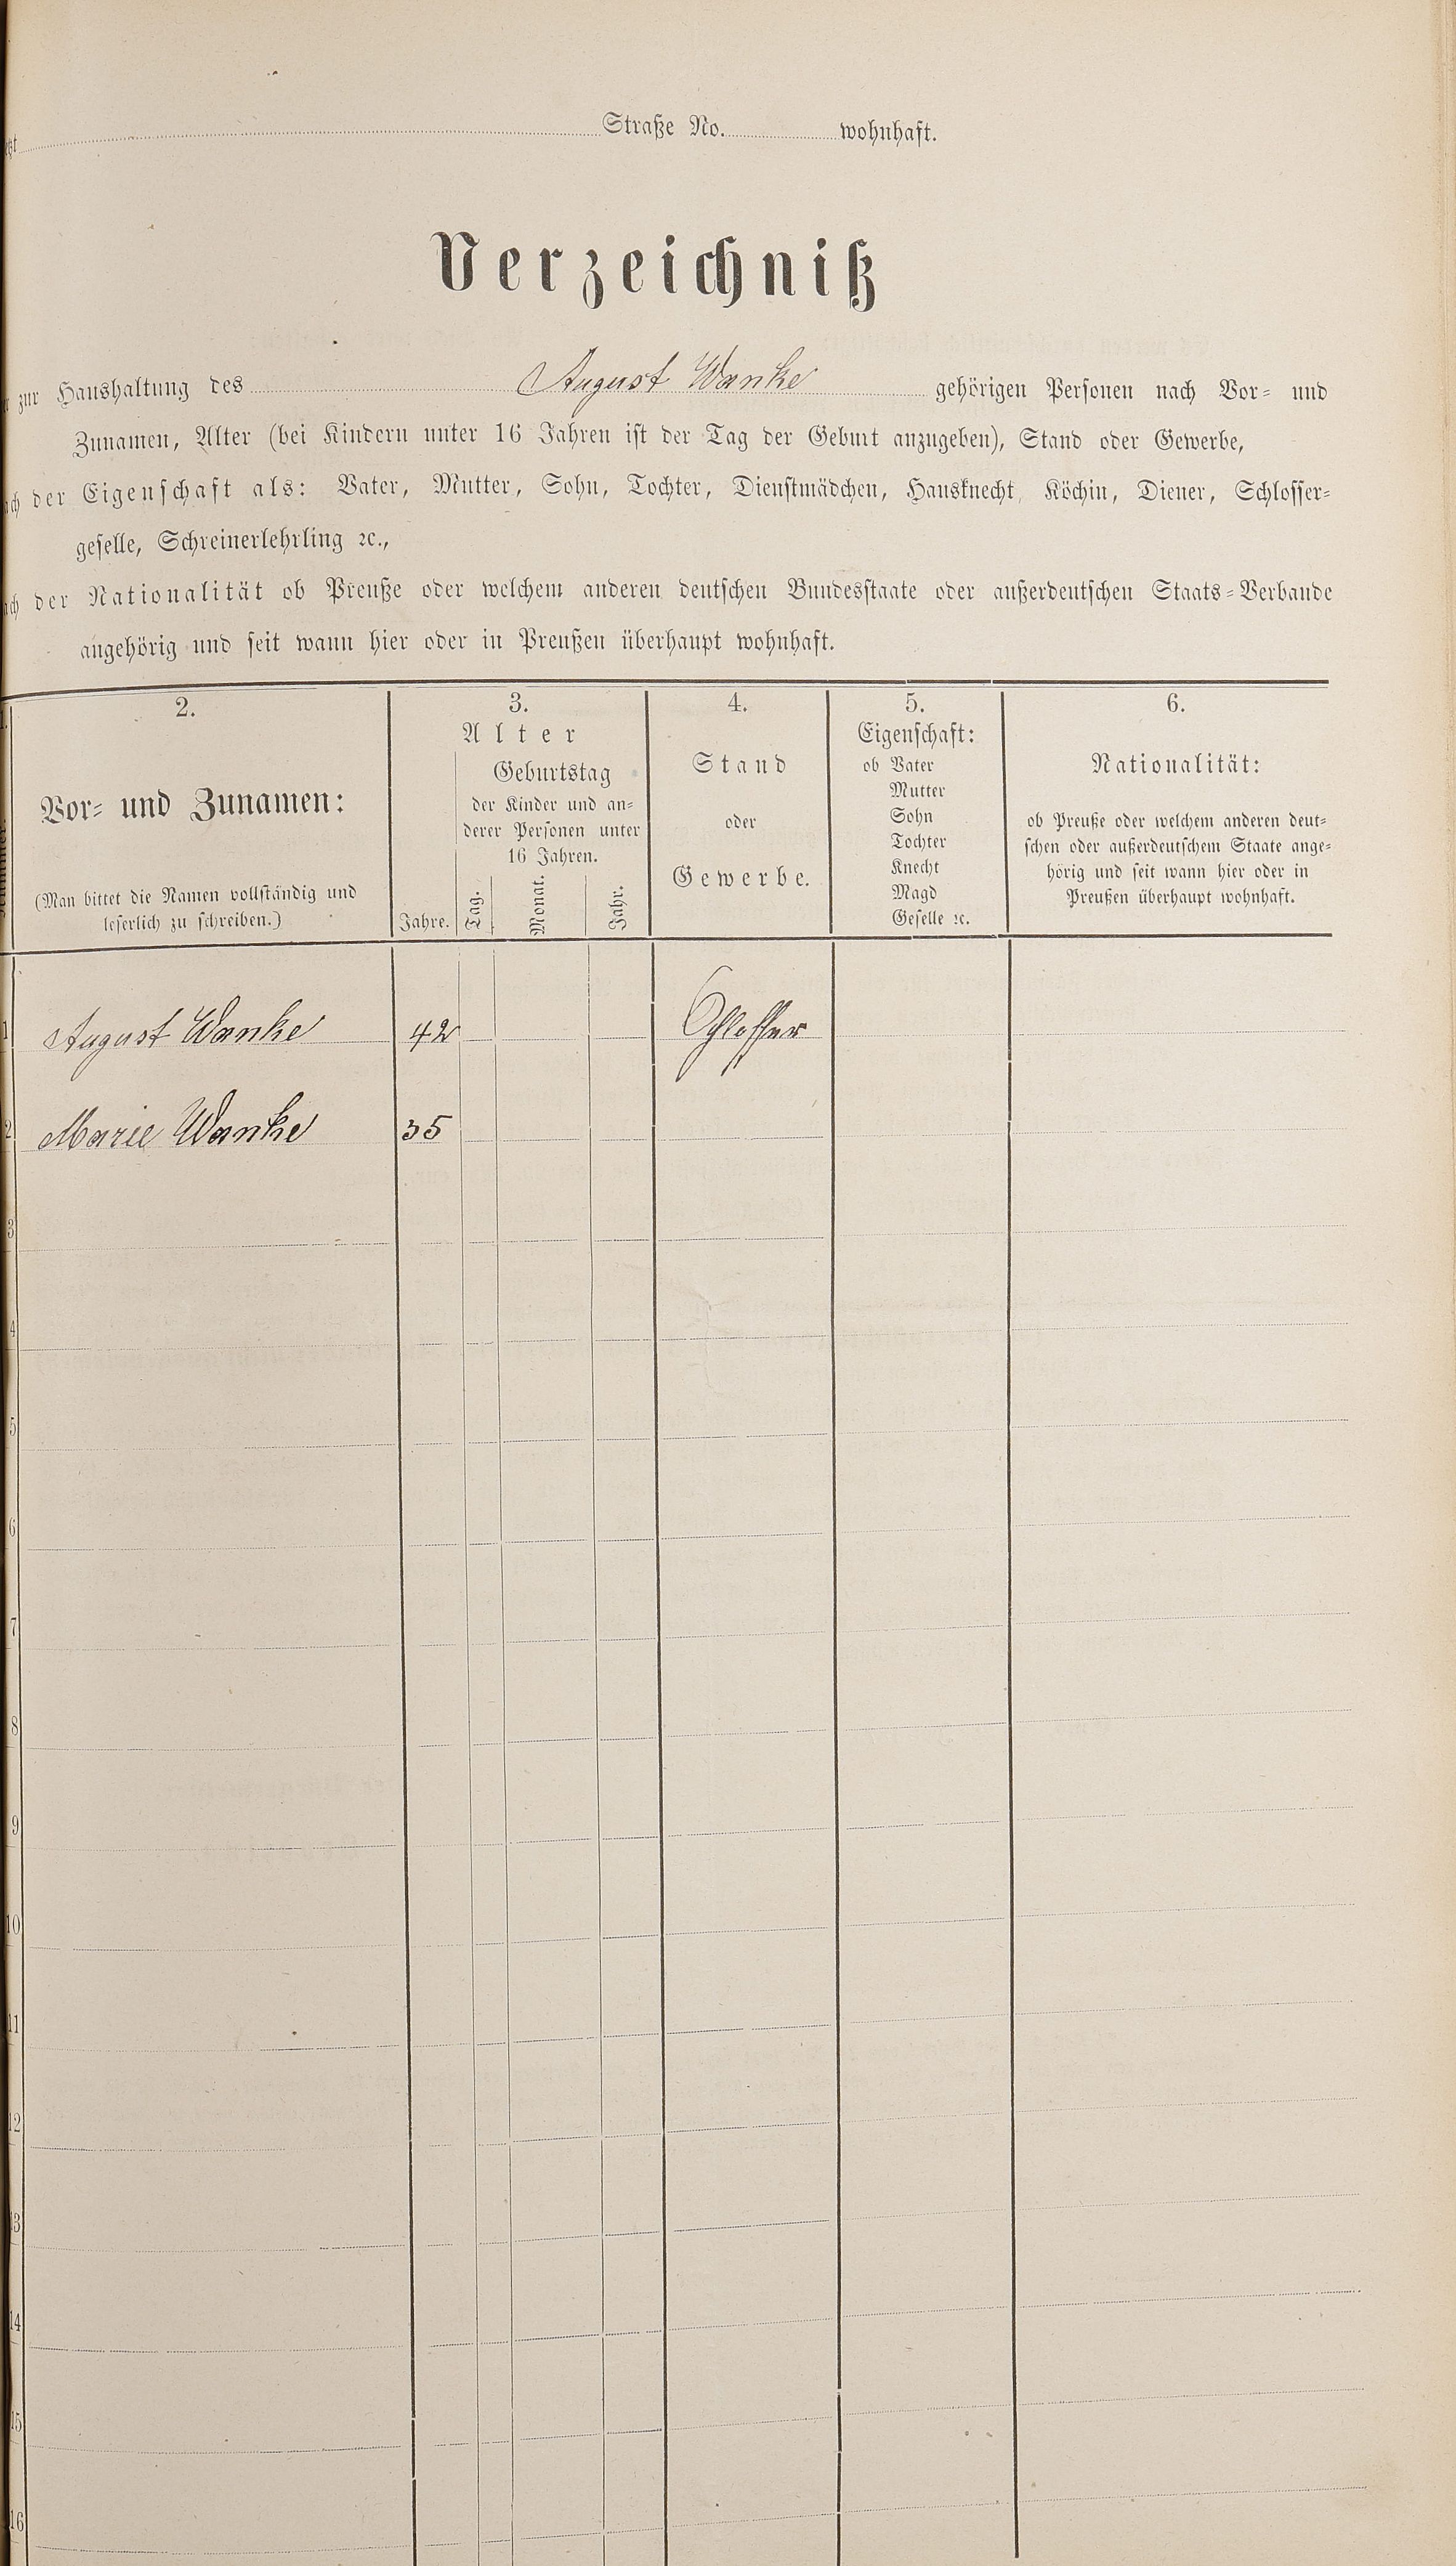 Straße No. wohnhaft.
Verzeichniß
zur Haushaltung des August Wanke gehörigen Personen nach Vor- und
Zunamen, Alter (bei Kindern unter 16 Jahren ist der Tag der Geburt anzugeben), Stand oder Gewerbe,
der Eigenschaft als: Vater, Mutter, Sohn, Tochter, Dienstmädchen, Hausknecht, Köchin, Diener, Schlosser-
geselle, Schreinerlehrling ꝛc.,
der Nationalität ob Preuße oder welchem anderen deutschen Bundesstaate oder außerdeutschen Staats-Verbande
angehörig und seit wann hier oder in Preußen überhaupt wohnhaft.
2.
Vor- und Zunamen:
(Man bittet die Namen vollständig und
leserlich zu schreiben.)
3.
Alter
Geburtstag
der Kinder und an-
derer Personen unter
16 Jahren.
Jahre. Tag. Monat. Jahr.
4.
Stand
oder
Gewerbe.
5.
Eigenschaft:
ob Vater
Mutter
Sohn
Tochter
Knecht
Magd
Geselle ꝛc.
6.
Nationalität:
ob Preuße oder welchem anderen deut-
schen oder außerdeutschem Staate ange-
hörig und seit wann hier oder in
Preußen überhaupt wohnhaft.
1 August Wanke 42 Schlosser
2 Marie Wanke 35
3
4
5
6
7
8
9
10
11
12
13
14
15
16